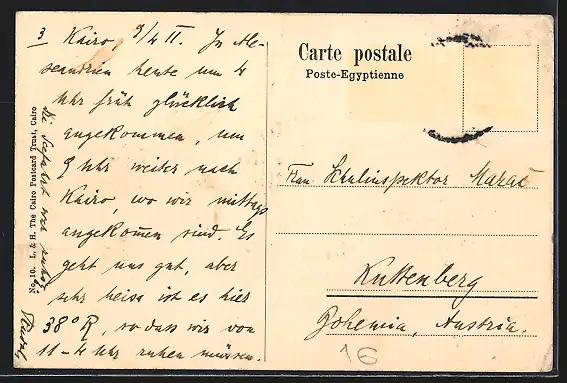 3
Kairo, 9/4 11. In Ale-
xandrien heute um 4
Uhr früh glücklich
angekommen, um
9 Uhr weiter nach
Kairo, wo wir mittags
angekommen sind. Es
geht uns gut, aber
sehr heiss ist es hier
38° R, so dass wir von
11-4 Uhr ruhen müssen.
Die Seefahrt war ruhig.
No. 10. L. & H. The Cairo Postcard Trust, Cairo
Carte postale
Poste-Egyptienne
Frau Schulinspektor
Kuttenberg
Bohemia, Austria.
16